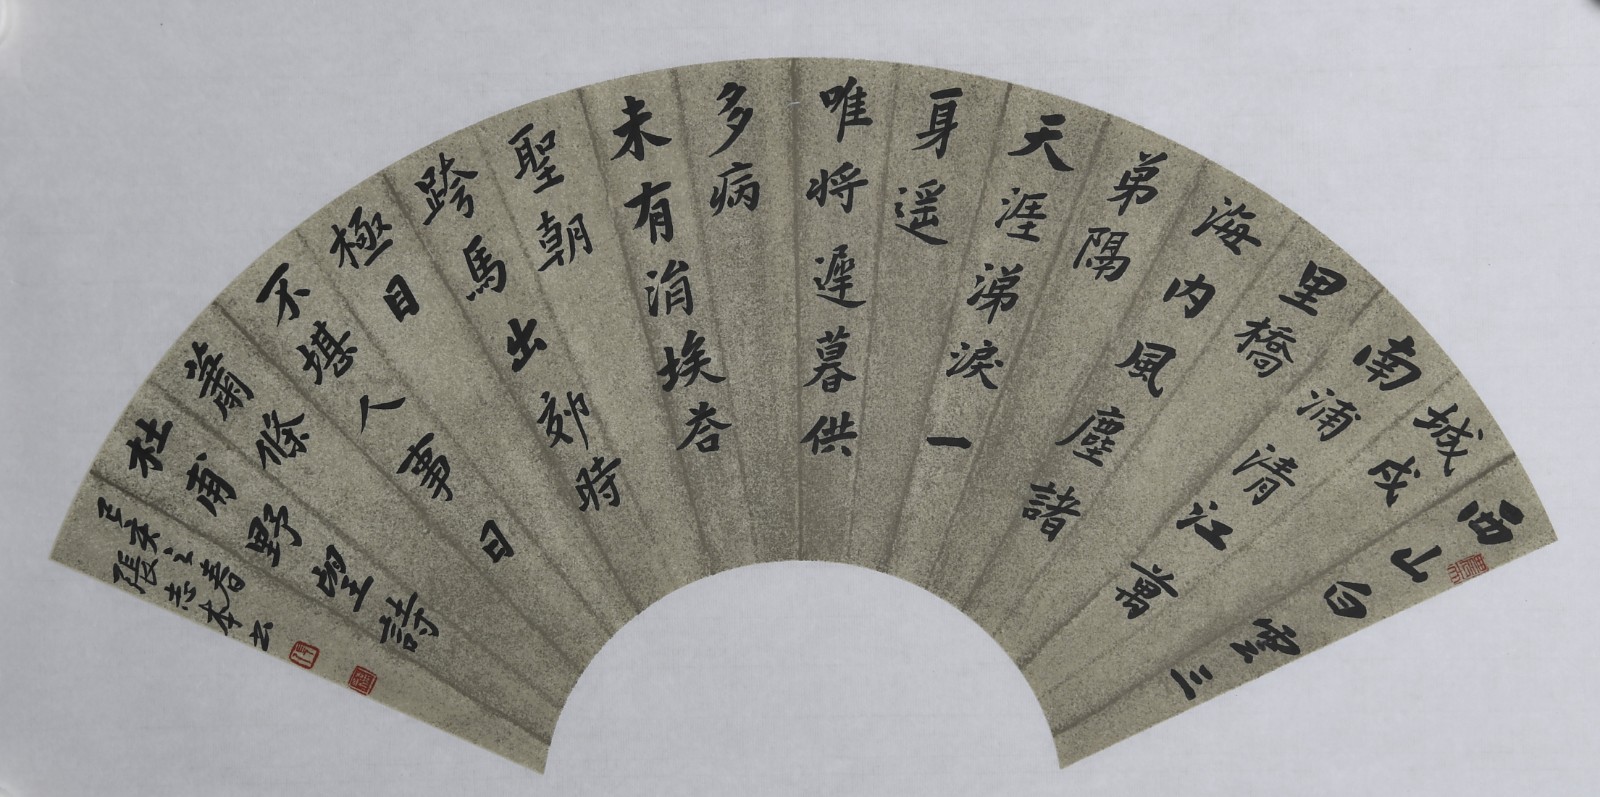 西山白雪三
城戍
南浦清江萬
里橋
海内風塵諸
弟隔
天涯涕淚一
身遥
唯将遲暮供
多病
未有涓埃荅
聖朝
跨馬出郊時
極目
不堪人事日
蕭條
杜甫野望詩
亥之春
張志本书